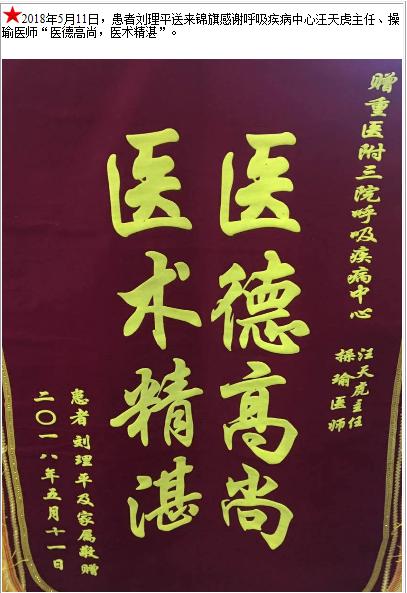 ★2018年5月11日，患者刘理平送来锦旗感谢呼吸疾病中心汪天虎主任、操
瑜医师“医德高尚，医术精湛”。
赠重医附三院呼吸疾病中心
汪天虎主任
操瑜医师
医德高尚
医术精湛
患者刘理平及家属敬赠
二〇一八年五月十一日